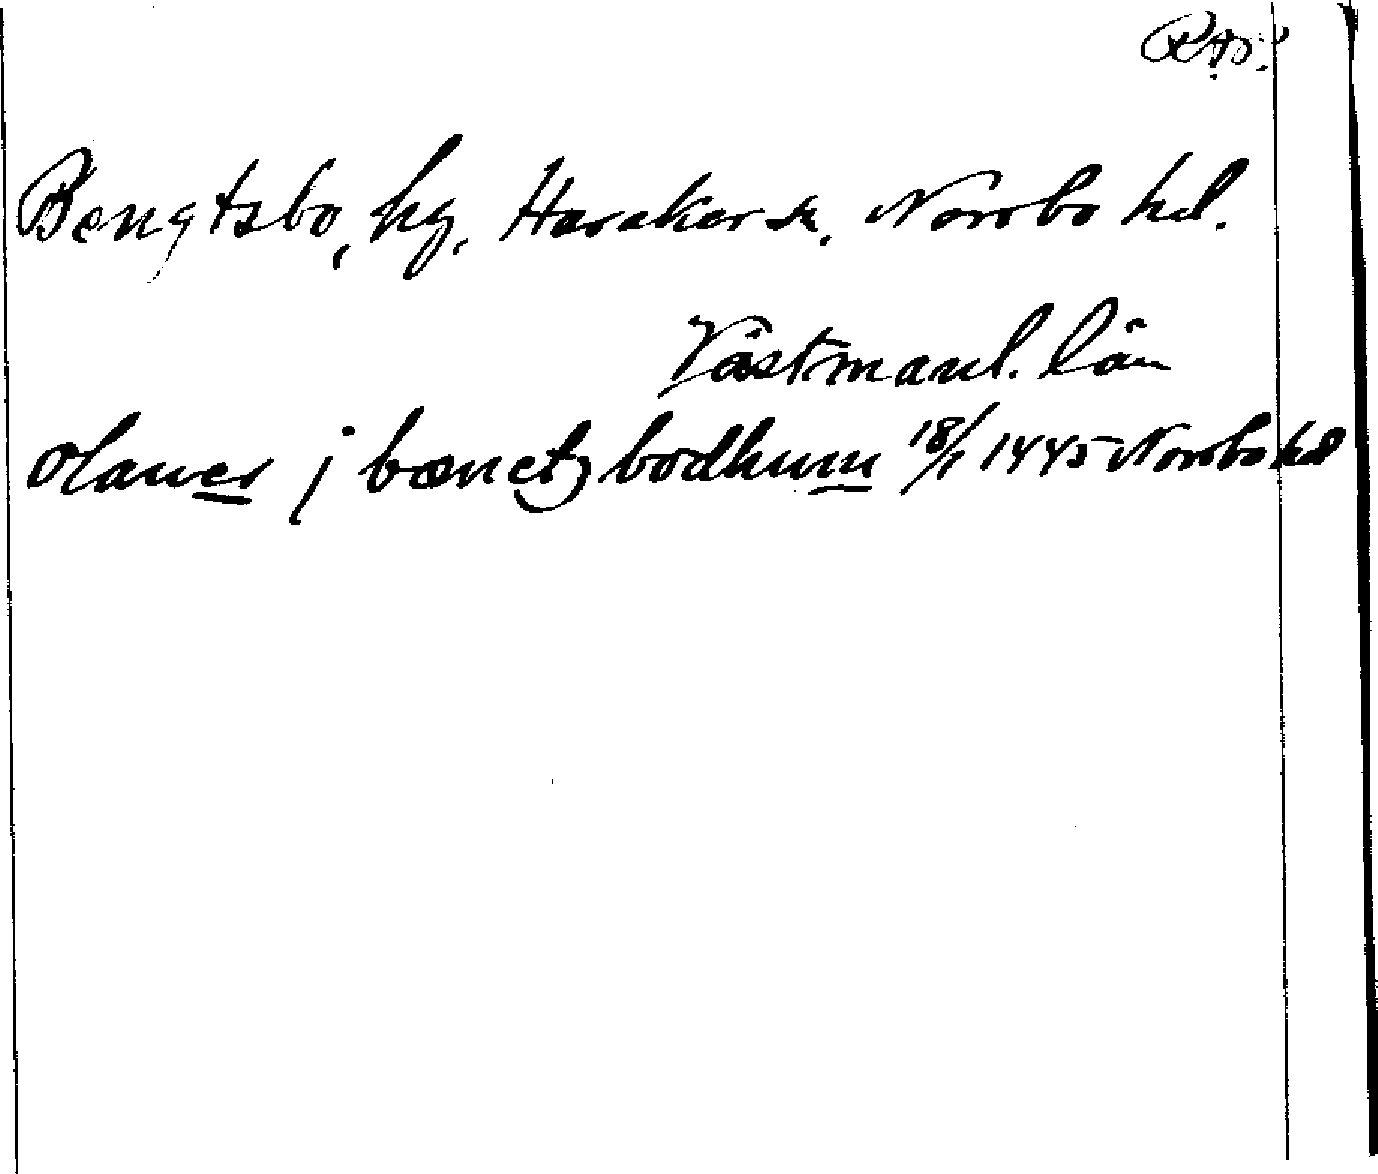 RAp.
Bengtsbo, hg, Haraker sn, Norrbo hd.
Västmanl. län
Olauer j bænctz bodhum 18/1 1445 Norrbo hd